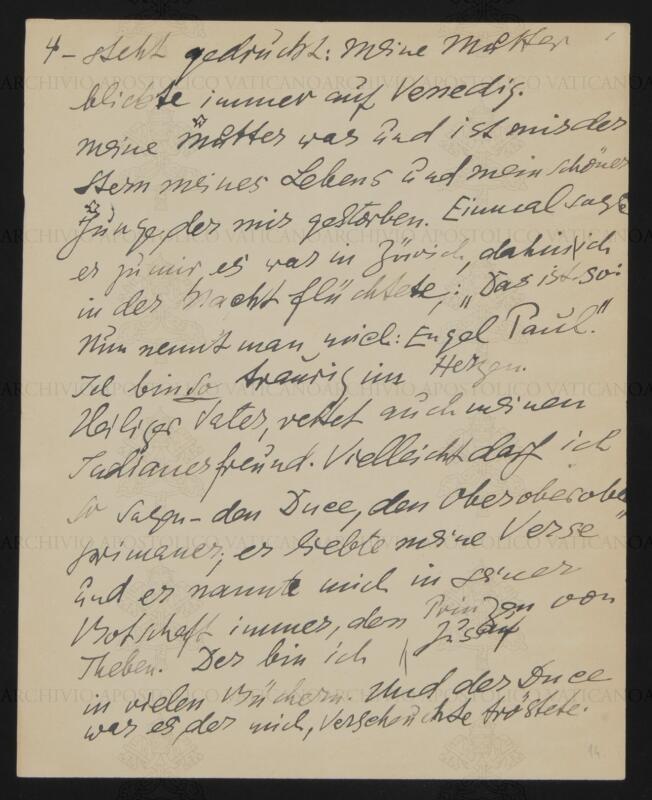 4– steht gedruckt: Meine Mutter
blickte immer auf Venedig.
Meine Mutter war und ist mir der
Stern meines Lebens und mein schöner
Junge, der mir gestorben. Einmal sagte
er zu mir, es war in Zürich, dahin ich
in der Nacht flüchtete,: „Das ist so:
Nun nennt man mich: Engel Paul."
Ich bin so traurig im Herzen.
Heiliger Vater, rettet auch meinen
Indianerfreund. Vielleicht darf ich
so sagen – den Duce, den Oberoberober
primaner; er liebte meine Verse
und er nannte mich in seiner
Botschaft immer, den Prinzen von
Theben. Der bin ich Jusuf
in vielen Büchern. Und der Duce
war es, der mich, Verscheuchte tröstete.
14.
ARCHIVIO APOSTOLICO VATICANO